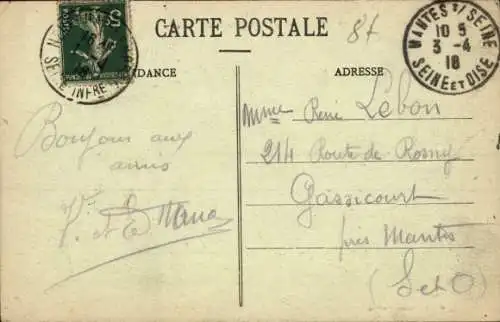 CARTE POSTALE
87
DANCE
ADRESSE
MANTES S/ SEINE
10 5
3 -4
18
SEINE ET OISE
INFRE
5
Bonjour aux
amis
Mme René Lebon
214 Route de Rosny
Gassicourt
près Mantes
(S et O)